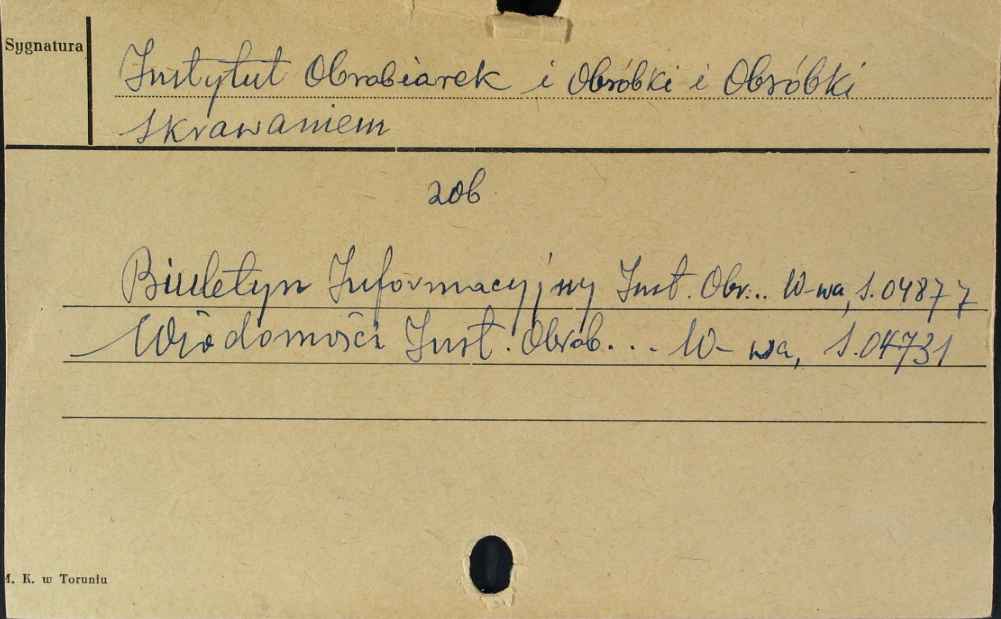 Sygnatura
Instytut Obrabiarek i Obróbki i Obróbki
skrawaniem
zob
Biuletyn Informacyjny Inst. Obr... W-wa, S.04877
Wiadomości Inst. Obrab... W-wa, S.04731
M. K. w Toruniu